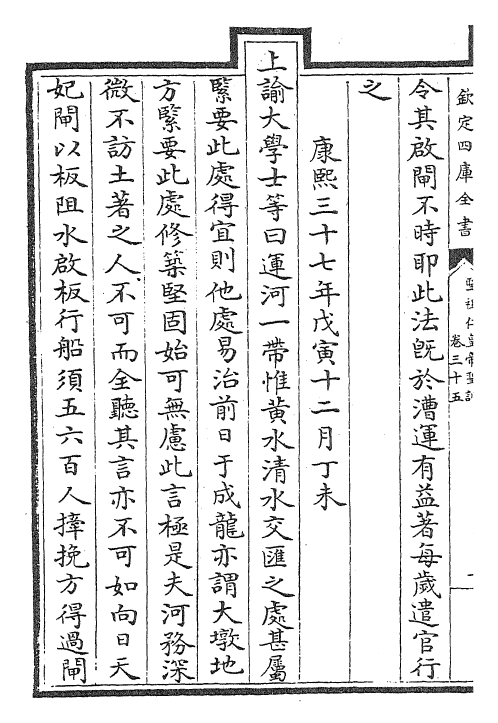 欽定四庫全書
聖祖仁皇帝聖訓
卷三十五
令其啟閘不時即此法既於漕運有益著每歲遣官行
之
康熙三十七年戊寅十二月丁未
上諭大學士等曰運河一帶惟黃水清水交匯之處甚屬
緊要此處得宜則他處易治前日于成龍亦謂大墩地
方緊要此處修築堅固始可無慮此言極是夫河務深
微不訪土著之人不可而全聽其言亦不可如向日天
妃閘以板阻水啟板行船須五六百人擡挽方得過閘